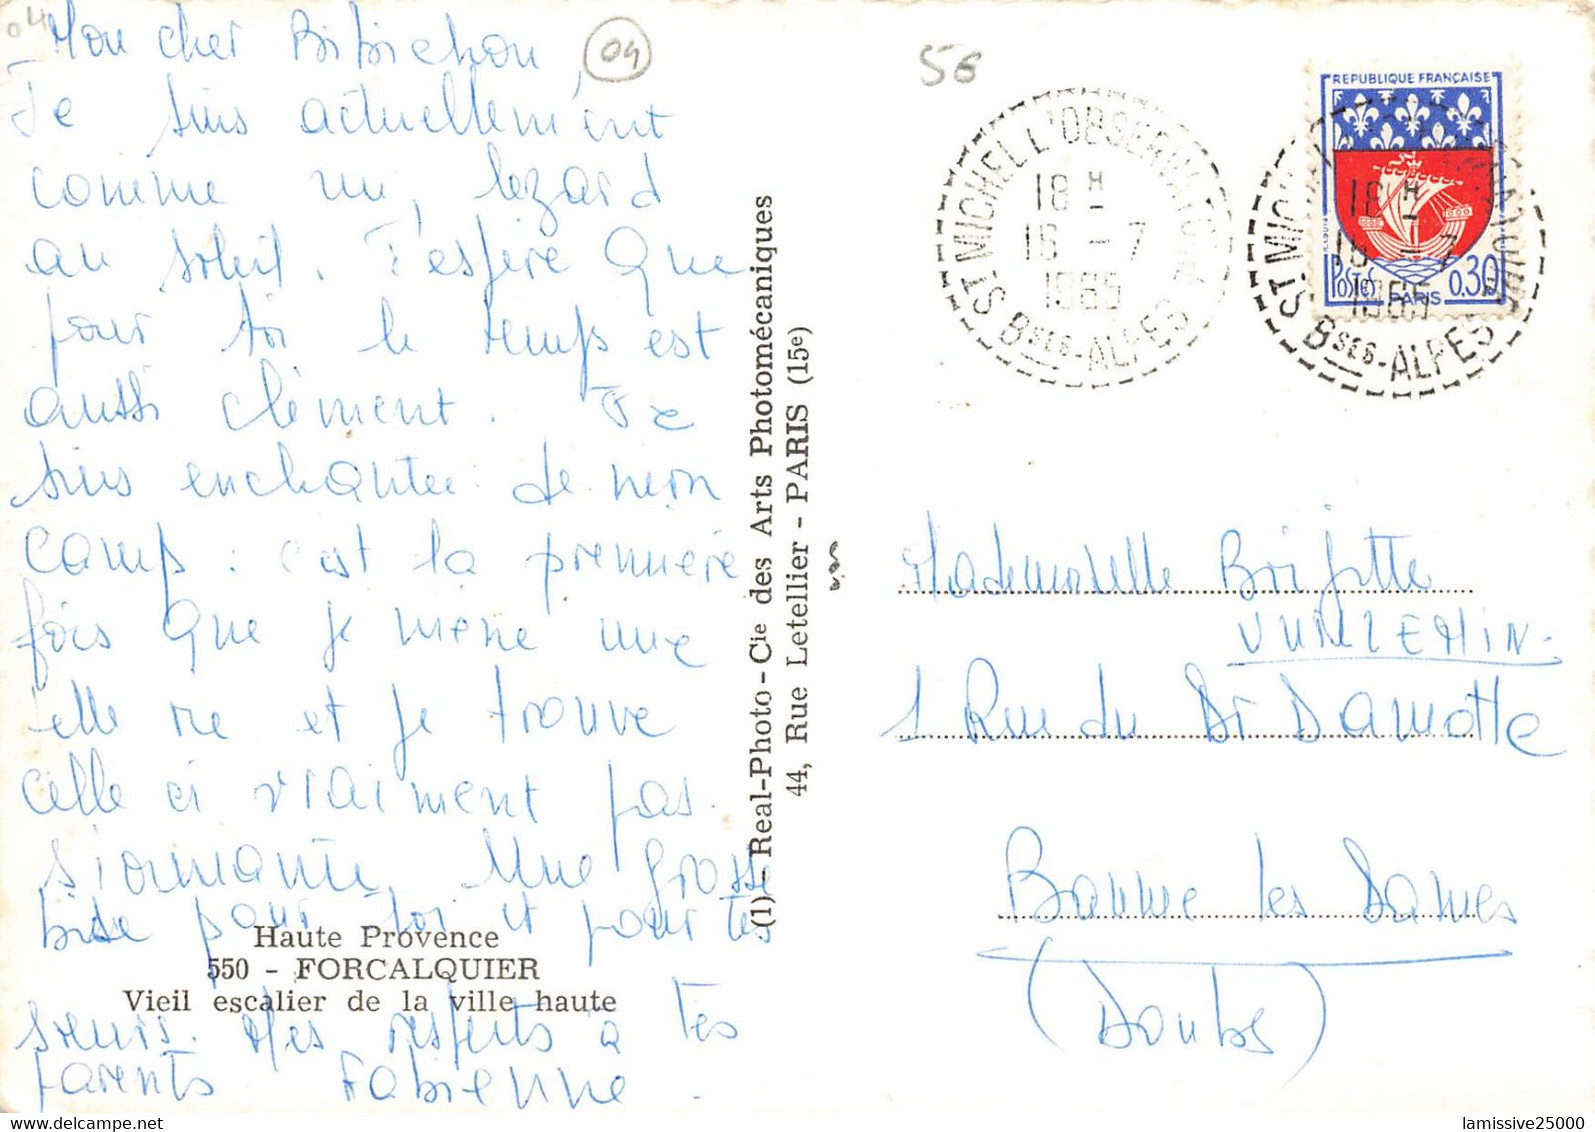 04
Mon cher Bibichon,
Je suis actuellement
comme un lézard
au soleil. J'espère que
pour toi le temps est
aussi clément. Je
suis enchantée de mon
camp : c'est la première
fois que je mène une
telle vie et je trouve
celle ci vraiment pas
Une grosse
bise pour toi et pour tes
soeurs. Mes respects à tes
parents Fabienne.
Haute Provence
550 - FORCALQUIER
Vieil escalier de la ville haute
04
(1) - Real-Photo-Cie des Arts Photomécaniques
44, Rue Letellier - PARIS (15e)
56
ST MICHEL L'OBSERVATOIRE
18 H
16 - 7
1965
Bses-ALPES
REPUBLIQUE FRANÇAISE
POSTES
PARIS
0,30
ST MICHEL L'OBSERVATOIRE
18 H
16 - 7
1965
Bses-ALPES
Mademoiselle Brigitte
VURLLEMIN.
1 Rue du Dr Damotte
Baume les Dames
(Doubs)
lamissive25000